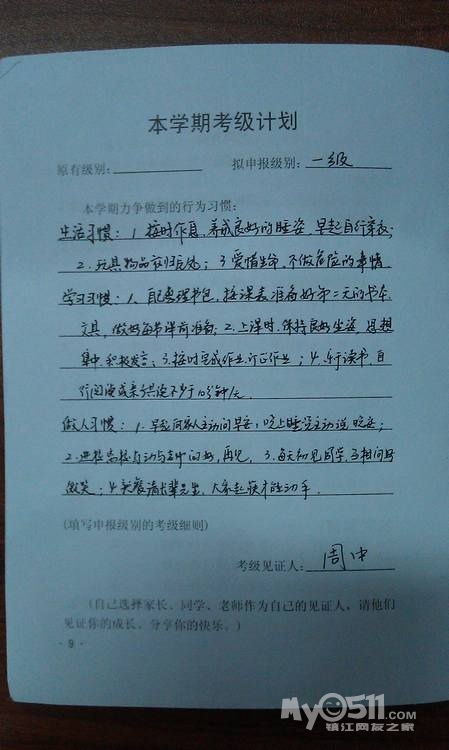 本学期考级计划
原有级别： 拟申报级别：一级
本学期力争做到的行为习惯：
生活习惯：1.按时作息，养成良好的睡姿，早起自行穿衣；
2.玩具物品归处；3.爱惜生命，不做危险的事情。
学习习惯：1.自己整理书包，按课表准备好第二天的书本
文具，做好每节课前准备；2.上课时，保持良好坐姿，思想
集中，积极发言；3.按时完成作业，订正作业；4.乐于读书，自
行阅读或亲子共读不少于10分钟/天。
做人习惯：1.早起向家人主动问早安，晚上睡觉主动说晚安；
2.进校离校主动与老师问好，再见。3.每天初见同学，互相问好
微笑。4.夹餐请长辈先坐，大家起筷才能动手。
(填写申报级别的考级细则)
考级见证人：周中
(自己选择家长、同学、老师作为自己的见证人，请他们
见证你的成长，分享你的快乐。)
·9·
My0511.com
镇江网友之家